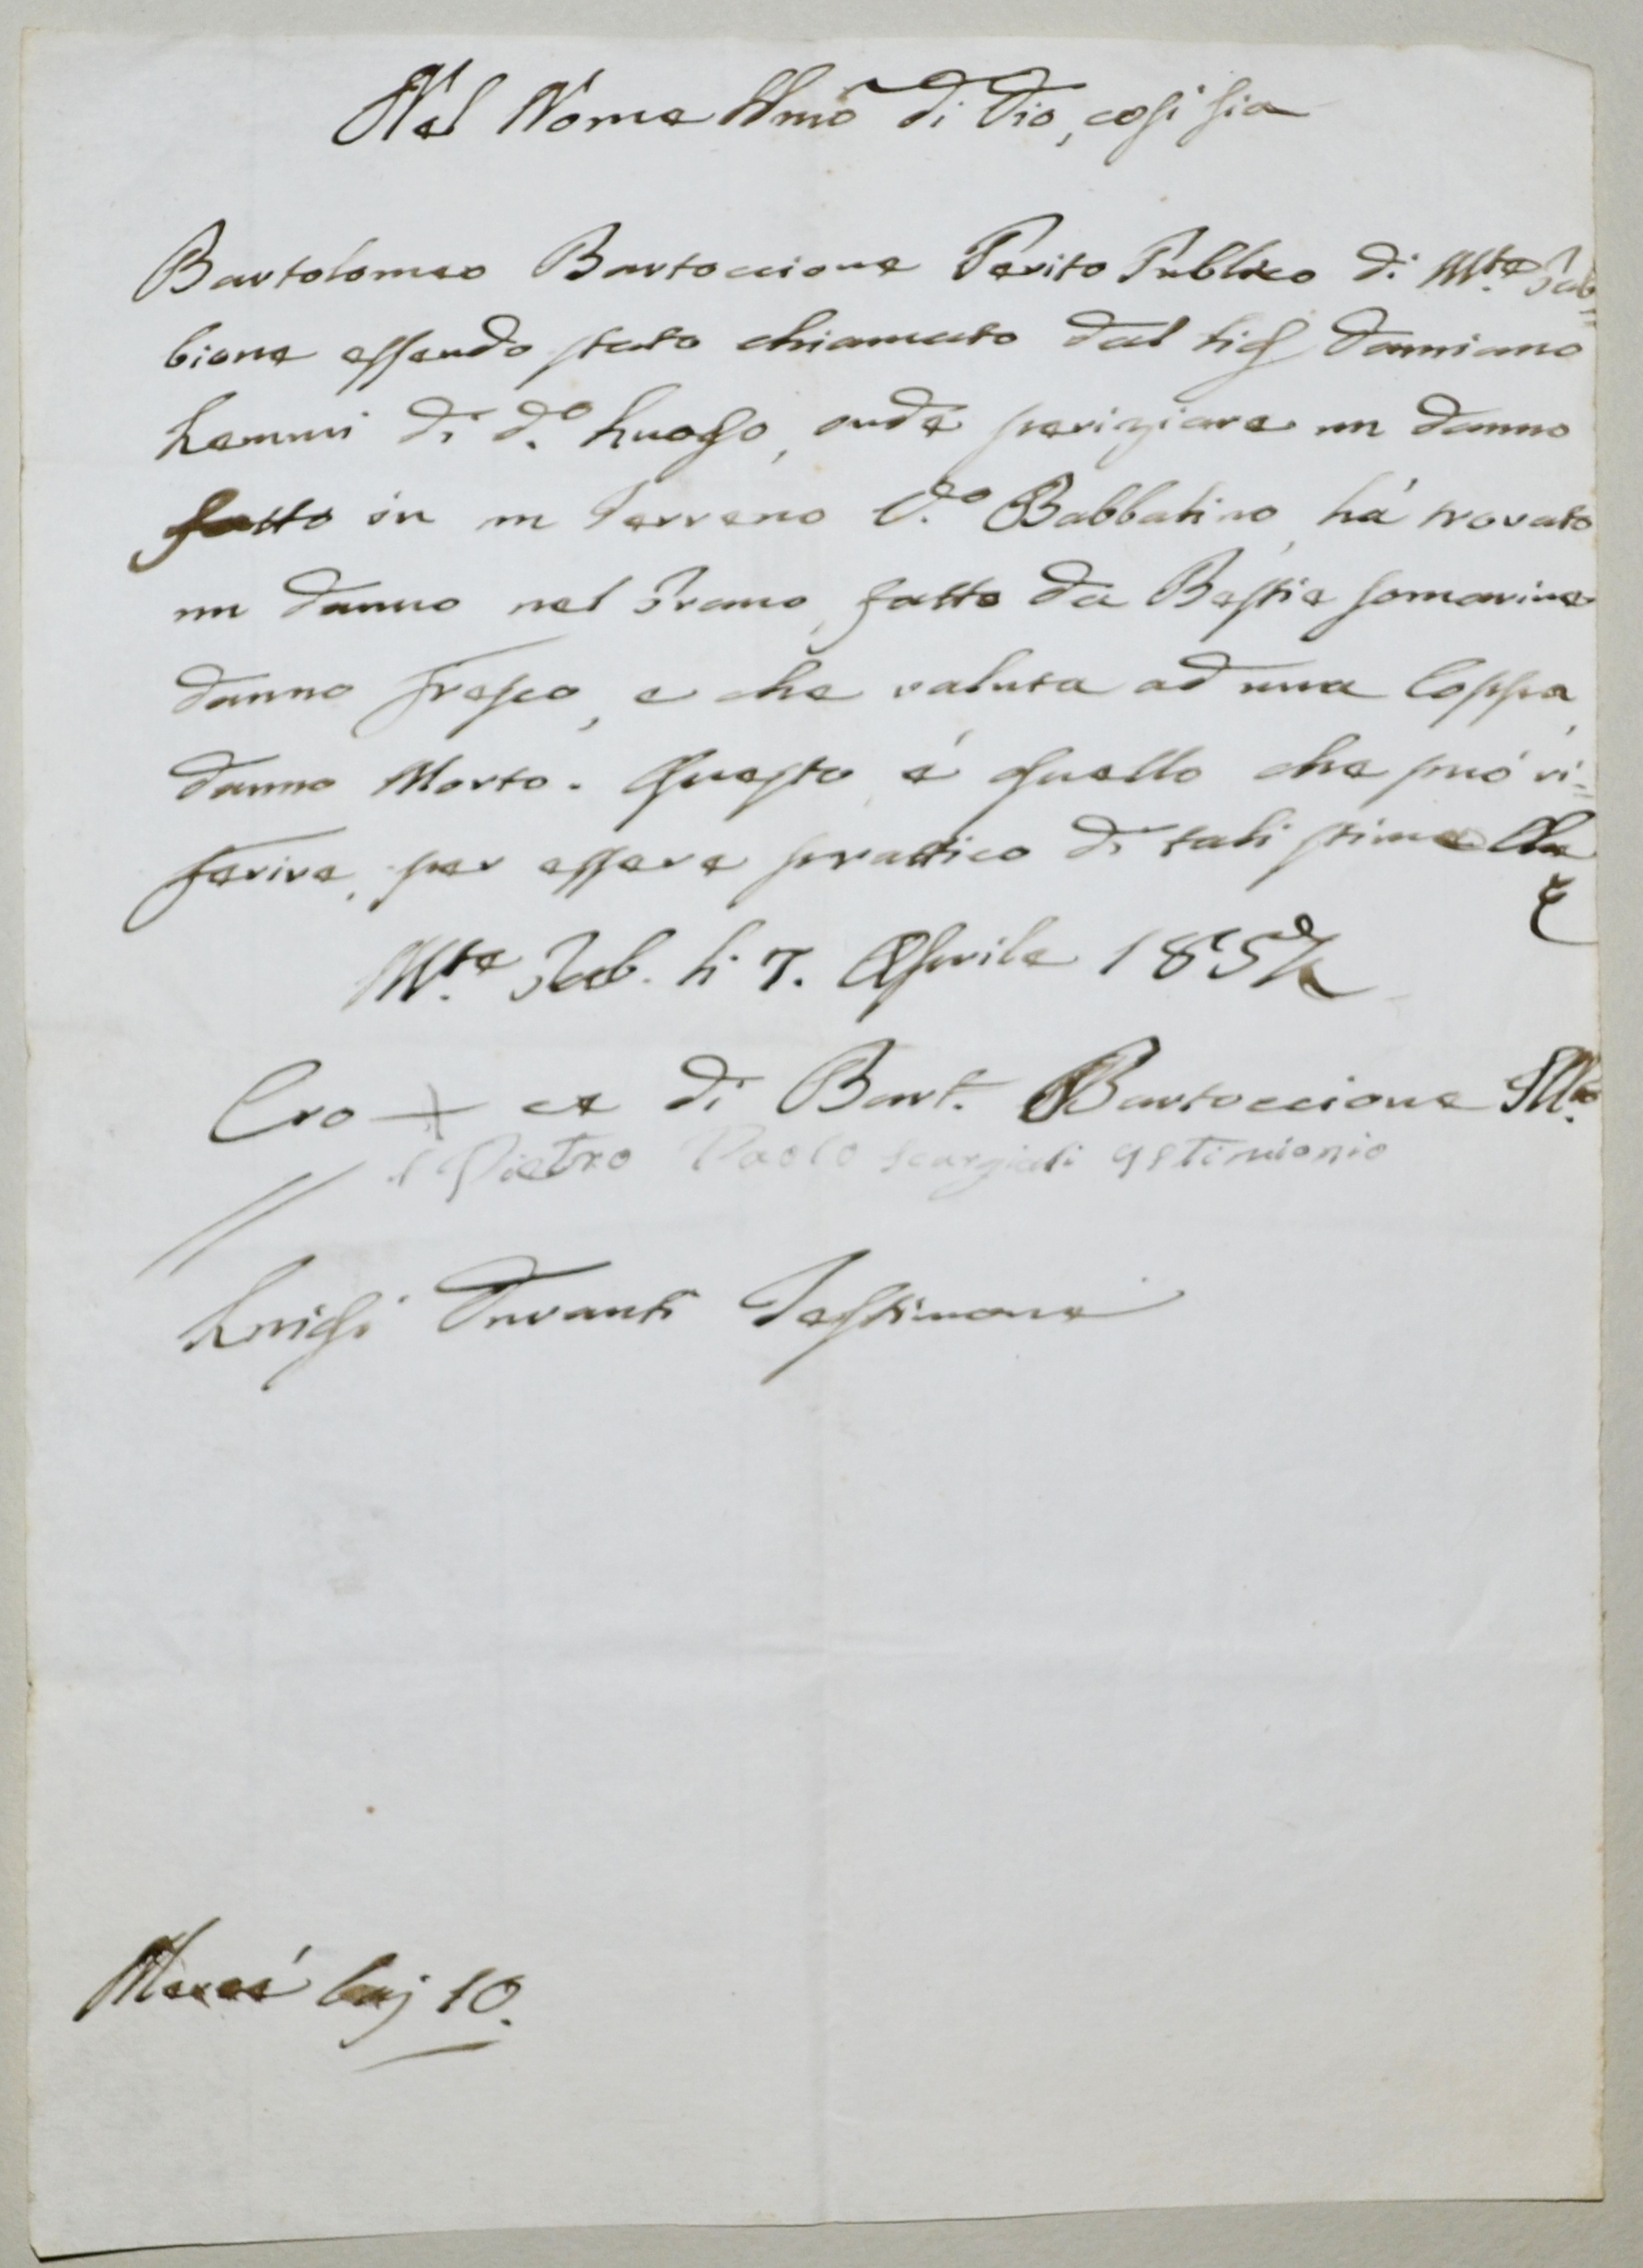 Nel Nome SSmo di Dio, così sia
Bartolomeo Bartoccione Perito Publico di M.te Gab=
bione essendo stato chiamato dal Sig Damiano
Lemmi di d.o Luogo, onde periziare un danno
fatto in un Terreno V.do Babbatino, há trovato
un danno nel Grano, fatto da Bestie somarine
danno fresco, e che valuta ad una Coppa,
danno Morto. Questo é quello che può ri=
ferire, per essere prattico di tali stime
M.te Gab. li 7. Aprile 1857
Cro + ce di Bart. Bartoccione Ill.
Pietro Paolo testimionio
Luigi Duranti Testimone
Mercé baj 10.